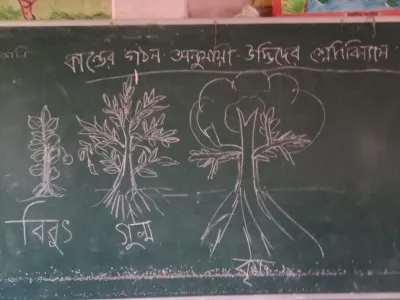 কান্ডের গঠন অনুযায়ী উদ্ভিদের শ্রেণিবিন্যাস
বিরুৎ
গুল্ম
বৃক্ষ